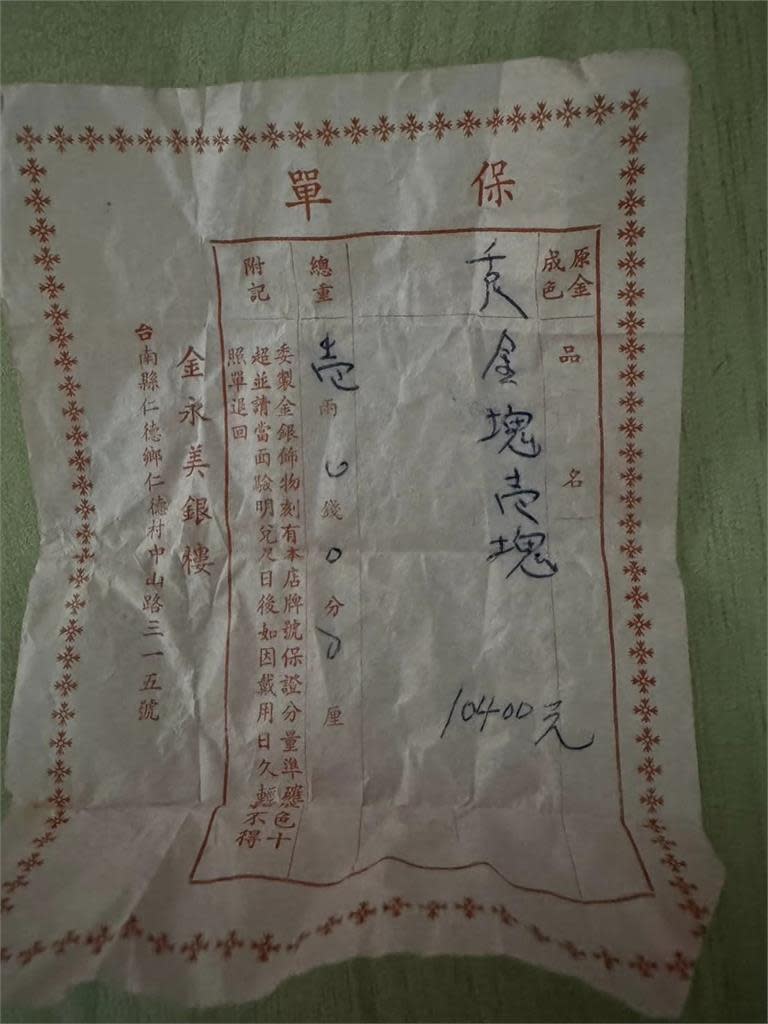 保單
原金
成色
品名
金塊壱塊
10400元
總重
壱兩0錢0分0厘
附記
委製金銀飾物刻有本店牌號保證分量準確色十
超並請當面驗明兌日後如因戴用日久輕不得
照單退回
金永美銀樓
台南縣仁德鄉仁德村中山路三一五號